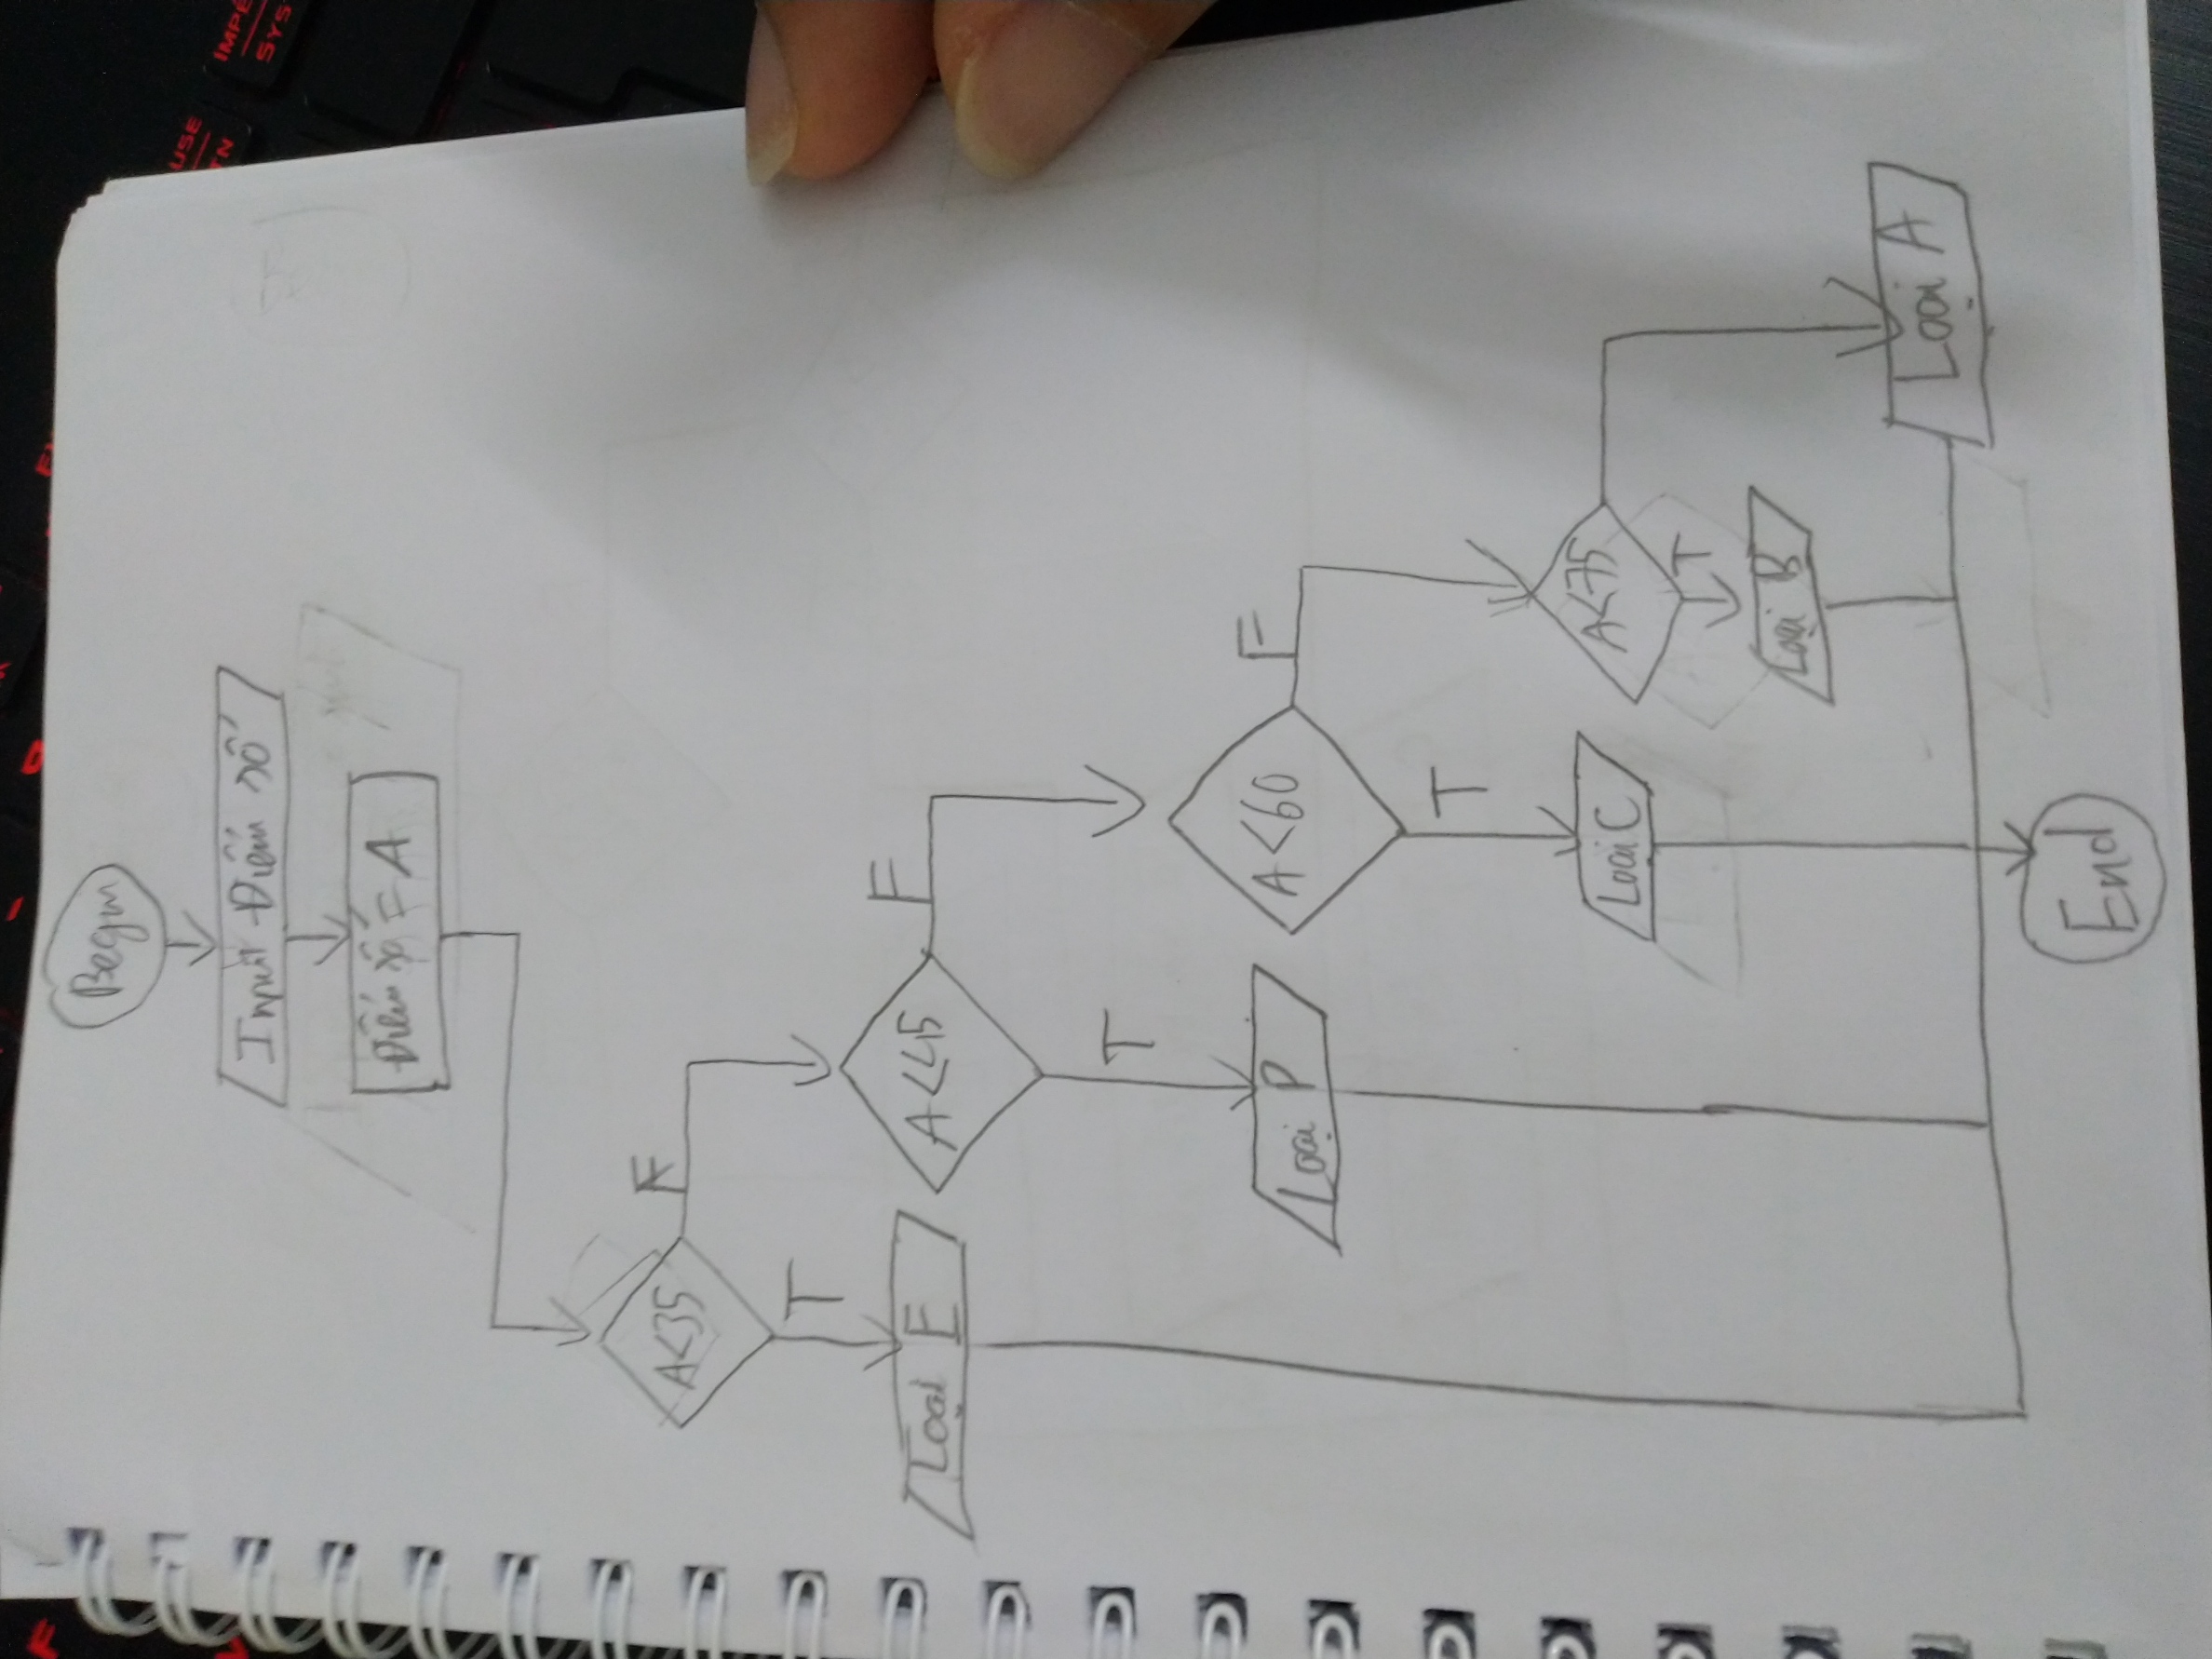 Begin
Input Điểm số
Điểm số = A
A<35
F
T
Loại E
A<45
F
T
Loại P
A<60
F
T
Loại C
A<75
T
Loại B
Loại A
End
USE